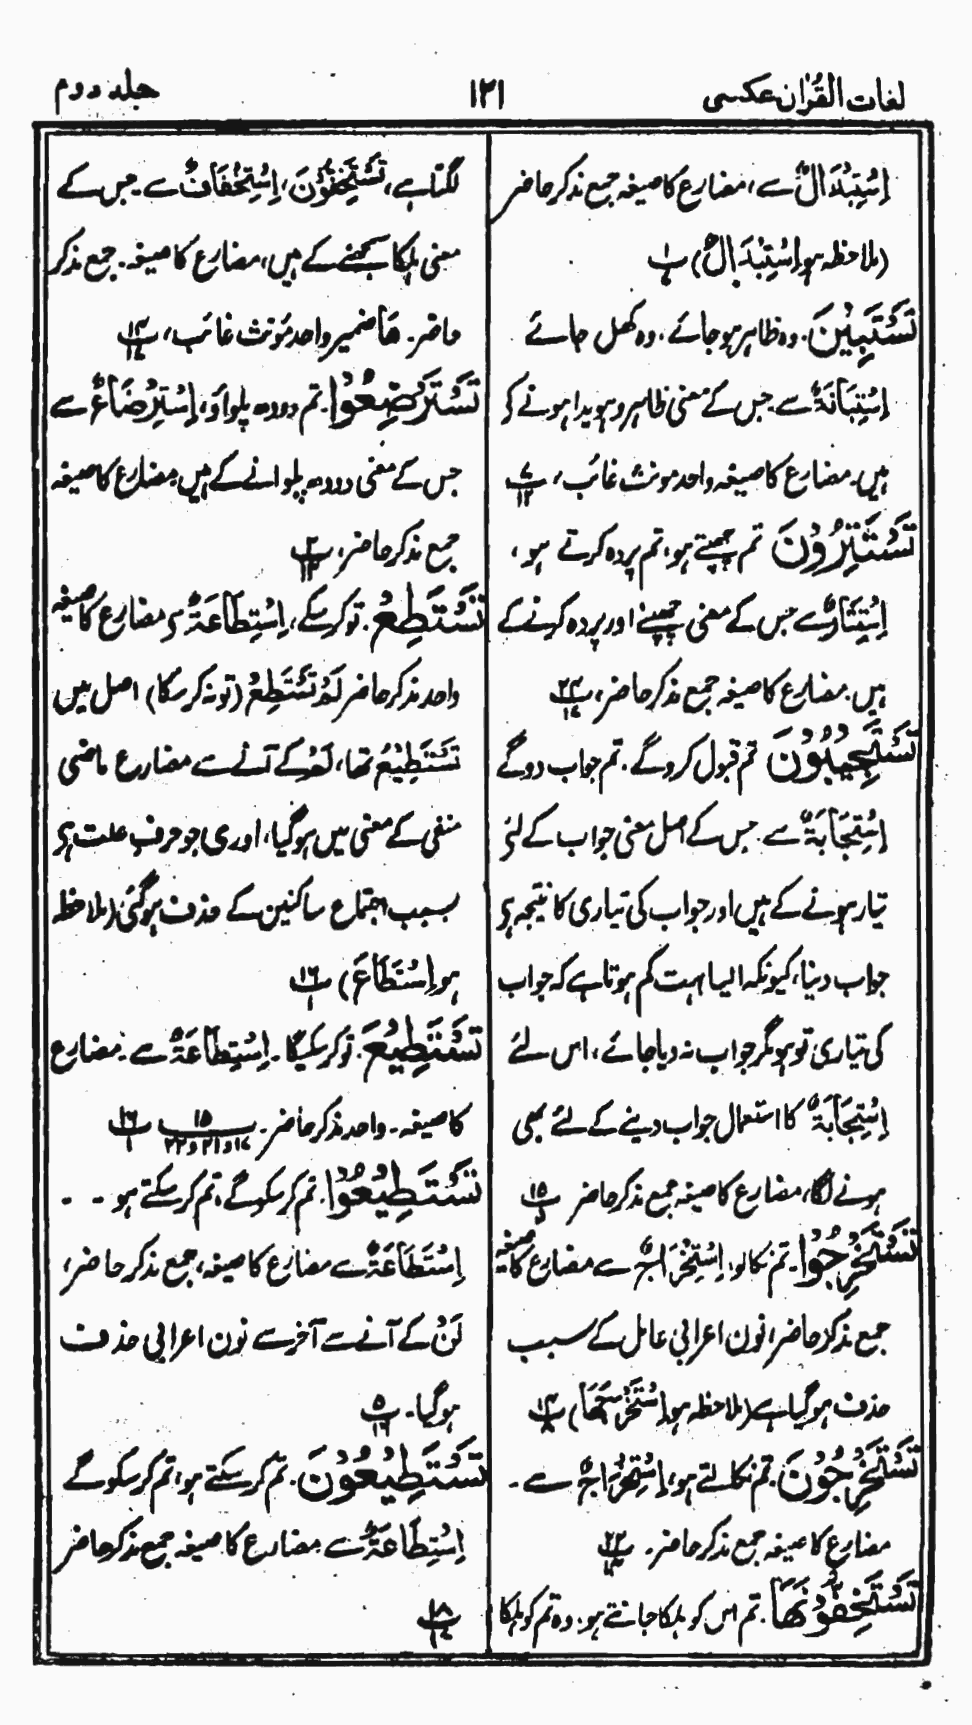 لغات القرآن عکسی
۱۲۱
جلد دوم
اِسْتِبْدَالٌ سے، مضارع کا صیغہ جمع مذکر حاضر
(ملاحظہ ہو اِسْتِبْدَال)
تَسْتَبِیْنَ. وہ ظاہر ہو جائے. وہ کھل جائے
اِسْتِبَانَۃٌ سے جس کے معنی ظاہر و ہویدا ہونے کے
ہیں. مضارع کا صیغہ واحد مونث غائب، ۷/۱۲
تَسْتَتِرُوْنَ تم چھپتے ہو، تم پردہ کرتے ہو،
اِسْتِتَارٌ سے جس کے معنی چھپنے اور پردہ کرنے کے
ہیں. مضارع کا صیغہ جمع مذکر حاضر، ۲۴/۱۷
تَسْتَجِیْبُوْنَ تم قبول کرو گے. تم جواب دو گے
اِسْتِجَابَۃٌ سے. جس کے اصل معنی جواب کے لئے
تیار ہونے کے ہیں اور جواب کی تیاری کا نتیجہ ہے
جواب دینا، کیونکہ ایسا بہت کم ہوتا ہے کہ جواب
کی تیاری تو ہو مگر جواب نہ دیا جائے، اس لئے
اِسْتِجَابَۃٌ کا استعمال جواب دینے کے لئے بھی
ہونے لگا، مضارع کا صیغہ جمع مذکر حاضر
تَسْتَخْرِجُوْا. تم نکالو، اِسْتِخْرَاجٌ سے مضارع کا صیغہ
جمع مذکر حاضر، نون اعرابی عامل کے سبب
حذف ہو گیا ہے (ملاحظہ ہو اِسْتَخْرَجَھَا) ۱۴/۸
تَسْتَخْرِجُوْنَ. تم نکالتے ہو، اِسْتِخْرَاجٌ سے -
مضارع کا صیغہ جمع مذکر حاضر. ۲۲/۱۴
تَسْتَخِفُّوْنَھَا. تم اس کو ہلکا جانتے ہو. وہ تم کو ہلکا
لگتا ہے، تَسْتَخِفُّوْنَ، اِسْتِخْفَافٌ سے. جس کے
معنی ہلکا سمجھنے کے ہیں، مضارع کا صیغہ. جمع مذکر
حاضر. ھَا ضمیر واحد مونث غائب، ۱۴/۱۷
تَسْتَرْضِعُوْا. تم دودھ پلواؤ، اِسْتِرْضَاعٌ سے
جس کے معنی دودھ پلوانے کے ہیں مضارع کا صیغہ
جمع مذکر حاضر، ۲/۱۴
تَسْتَطِعْ. تو کر سکے، اِسْتِطَاعَۃٌ سے مضارع کا صیغہ
واحد مذکر حاضر لَمْ تَسْتَطِعْ (تو نہ کر سکا) اصل میں
تَسْتَطِیْعُ تھا، لَمْ کے آنے سے مضارع ماضی
منفی کے معنی میں ہو گیا، اور ی جو حرف علت ہے
بسبب اجتماع ساکنین کے حذف ہو گئی (ملاحظہ
ہو اِسْتَطَاعَ) ۱۶/۱
تَسْتَطِیْعَ. تو کر سکیگا. اِسْتِطَاعَۃٌ سے. مضارع
کا صیغہ. واحد مذکر حاضر. ۱۵/۱۷ و ۲۱ و ۲۲ ۱۶/۱
تَسْتَطِیْعُوْا. تم کر سکو گے، تم کر سکتے ہو - -
اِسْتَطَاعَۃٌ سے مضارع کا صیغہ، جمع مذکر حاضر،
لَنْ کے آنے سے آخر سے نون اعرابی حذف
ہو گیا. ۵/۱۶
تَسْتَطِیْعُوْنَ. تم کر سکتے ہو، تم کر سکو گے
اِسْتِطَاعَۃٌ سے مضارع کا صیغہ جمع مذکر حاضر
۱۸/۱۷